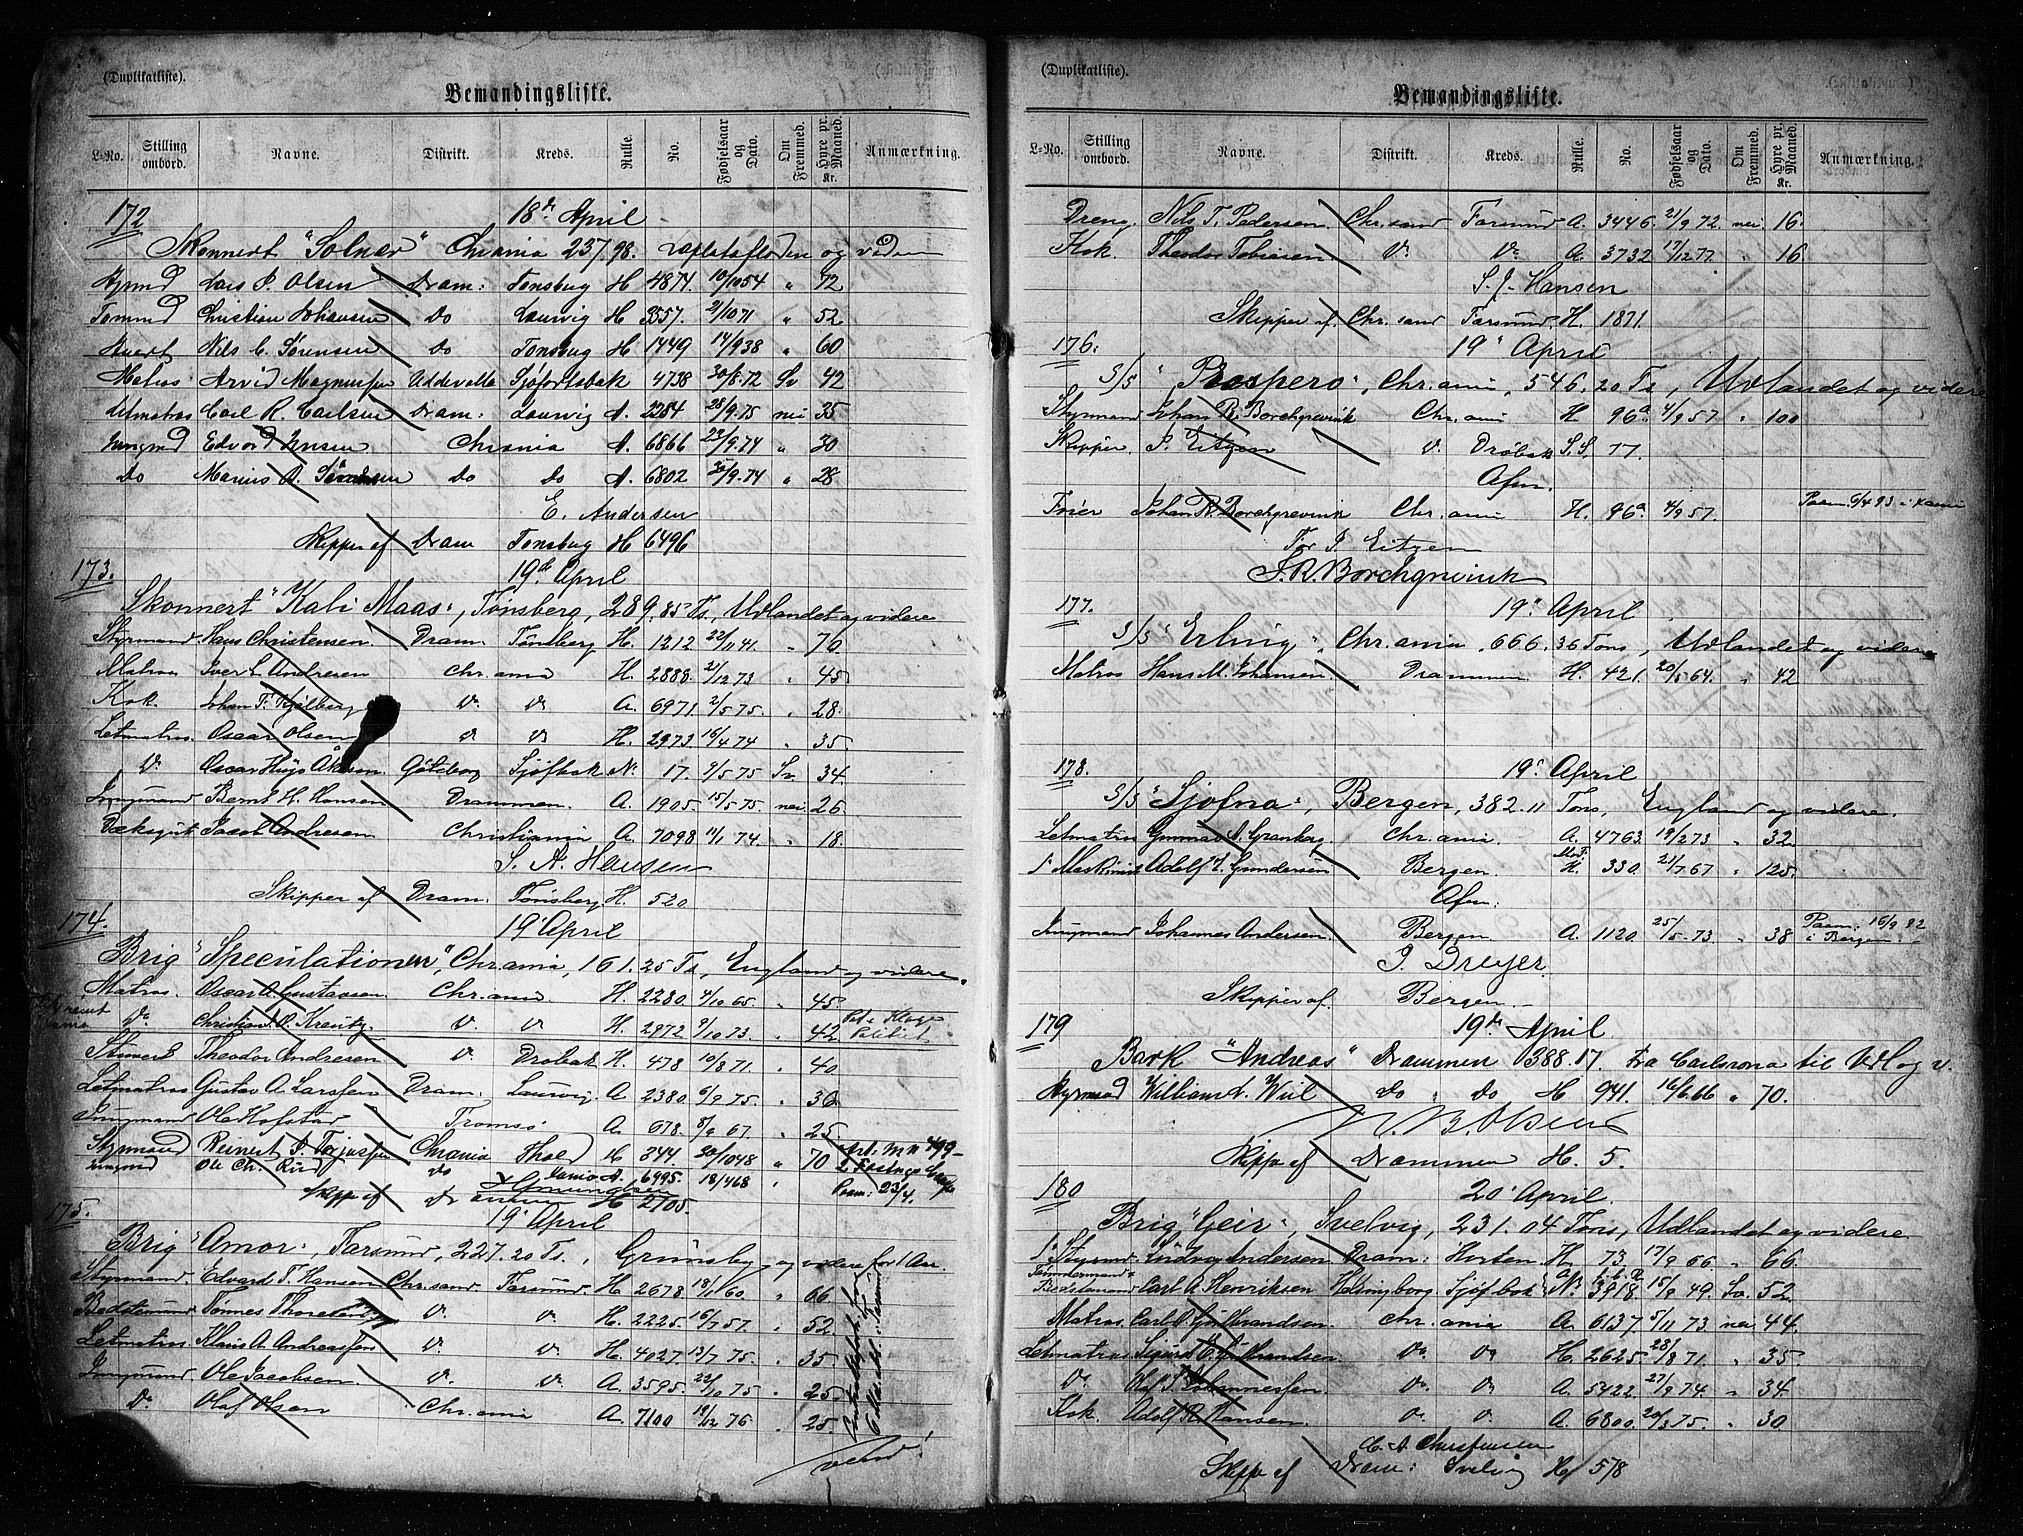 (Duplikatliste).
Bemandingsliste.
L-No. Stilling ombord. Navne. Distrikt. Kreds. Rulle. No. Fødselsaar og Dato. Om Fremmed. Hyre pr. Maaned. Kr. Anmærkning.
172 18de April
Skonnert "Solnær" Chrania 237.98. Laplatafloden og videre
Lars P. Olsen Dram: Tønsbug H 4874. 10/10 54 " 72
Tømmd Christian Johansen Do Laurvig H 3557. 2/10 71 " 52
Stuert Nils C. Sørensen Do Tønsbug H 1449 14/9 38 " 60
Matros Arvid Magnussen Uddevalla Sjøfortsbok 4738 30/8 72 Sv 42
Letmatros Carl R. Carlsen Dram: Laurvig A. 2284 28/9 75 nei 35
Jungmd Edvard Jensen Chrania A. 6866 23/9 74 " 30
Do Marius A. Sørensen do do A. 6802 /9.74 " 28
E. Andersen
Skipper af Dram Tønsbug H 6496
173. 19de April
Skonnert "Kali Maas", Tønsberg, 289.85 Ts, Udlandet og videre
Styrmand Hans Christensen Dram. Tønsberg H. 1212 22/11 41. " 70
Matros Iver L Andresen Chr.ania H. 2888 2/12 73 " 45
Kok Johan F. Kjølberg Do Do A. 6971 2/5 75. " 28.
Letmatros Oscar Olsen Do Do H. 2973 16/4 74 " 35
Do Oscar Hugo Göteborg Sjøfbok N. 17. 9/5 75 Sv 34.
Jungmand Bernt H. Hansen Drammen A. 1905. 15/5 75. nei 26
Dæksgut Jacob Andresen Christiania A. 7098 14/1 74. " 18.
S. A. Hansen
Skipper af Dram. Tønsberg H. 520
174. 19 April
Brig "Speculationen", Chr.ania, 161.25 Ts, England og videre.
Matros. Oscar A. Gustavsen. Chr.ania H. 2280 4/10 65. " 45
Do Christian O. Kreutz. Do Do H. 2972 9/10 73. " 42
Stuert Theodor Andresen Do Drøbak H. 478 10/8 71. " 40
Letmatros Gustav A. Larssen Dram. Laurvig A. 2380 6/9 75. " 30
Jungmand Ole Hofstad Tromsø A. 678. 8/9 67. " 25
Styrmand Reinert P. Torjussen Chrania H 344. 20/10 48 " 70
Jungmd Ole Chr. Rud do A. 6995. 18/4 68 " Paam: 23/4.
Skipp af Drammen H 2705.
175. 19 April
Brig "Amor", Farsund, 227.20 Ts. Grimsby og videre for 1 Aar.
Styrmand. Edvard T. Hansen Chr.sand Farsund H 2678 18/1 60. " 66
Bedstemand Tønnes Do Do H. 2225. 16/7 57. " 52
Letmatros Klaus A. Andreassen Do Do H. 4027. 13/7 75. " 35
Jungmand Ole Jacobsen Do Do A. 3595. 22/10 75 " 25
Do Olaf Olsen Chr.ania A. 7100 19/12 76 " 25.
vend!
(Duplikatliste).
Bemandingsliste.
L-No. Stilling ombord. Navne. Distrikt. Kreds. Rulle. No. Fødselsaar og Dato. Om Fremmed. Hyre pr. Maaned. Kr. Anmærkning.
Dreng. Nils T. Pedersen. Chr.sand Farsund A. 3446. 21/9 72. nei 16.
Kok. Theodor Tobiasen Do Do A. 3732 17/12 77. " 16
S. J. Hansen
Skipper af. Chr.sand Farsund. H. 1871.
176. 19 April
S/S "Prospero", Chr.ania, 546.20 Ts, Udlandet og videre
Styrmand Johan R. Borchgrevink Chr.ania H. 96a 4/9 57 " 100
Skipper. P. Eitzen Do Drøbak S.S. 77.
Afm.
Fører Johan R. Borchgrevink Chr.ania H. 96a. 4/9 57. Paam. 6/4 93 i
For P. Eitzen
J. R. Borchgrevink
177. 19 April
S/S "Erling", Chr.ania, 666.36 Tons, Udlandet og videre
Matros Hans M. Johansen Drammen H. 421. 20/5 64. " 42
178. 19 April
S/S "Sjofna", Bergen, 382.11 Tons, England og videre.
Letmatros Gunnar A. Granberg Chr.ania A. 4763. 19/2 73 " 32
1ste Maskinist Adolf E. Gundersen Bergen H. 330. 21/7 67 " 125.
Afm:
Jungmand Johannes Andersen. Bergen A. 1120. 25/5.73. " 38 Paam: 16/9 92 i Bergen
P. Dreyer.
Skipper af. Bergen.
179 19de April
Bark "Andreas" Drammen 388.17. fra Carlscrona til Udl og v.
Styrmand William Do Do H 941. 16/6.66 " 70.
B. Olsen
Skipp af Drammen H. 5.
180 20 April
Brig "Geir", Svelvig, 231.04 Tons, Udlandet og videre
1. Styrmd Ludvig Andersen Dram: Horten H. 73 17/9 66 " 66
Tømmermand Bedstemand Carl A. Henriksen Helsingborg Sjøfbok N. 3918. 15/9 49. Sv. 52.
Matros Carl Chr.ania A. 6137 5/11 73 nei 44.
Letmatros Sigurd Do Do H. 2625. 28/8 71. " 35.
Do Olaf S. Johannessen Do Do A. 5422. 27/9 74 " 34
Kok. Adolf R. Hansen. Do Do A. 6800. 20/3 75. " 30
C. A. Christensen
Skipp af Dram: Svelvig H 578